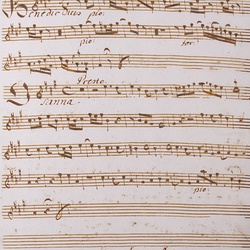 Benedictus pio:
pio: for:
Presto
Sanna
pio: